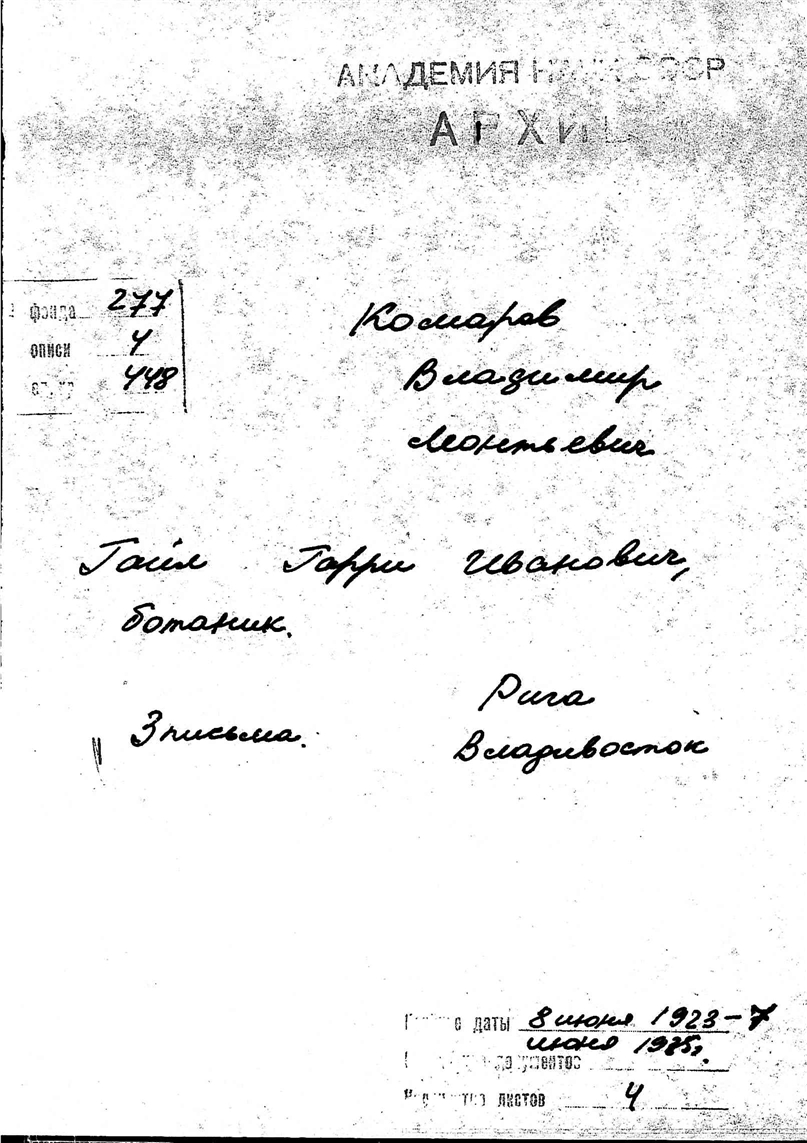 АКАДЕМИЯ НАУК СССР
АРХИВ
фонда 277
описи 4
448
Комаров
Владимир
Леонтьевич
Гайл Гарри Иванович,
ботаник.
3 письма.
Рига
Владивосток
даты 8 июня 1923 – 7
июня 1925г.
документов
листов 4